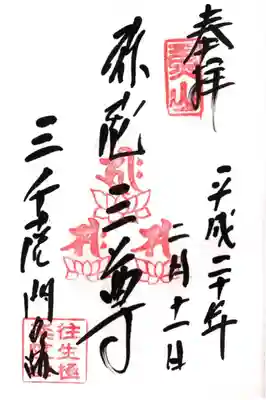 奉拝
平成二十年
二月十一日
弥陀三尊
三千院門跡
往生極
楽院